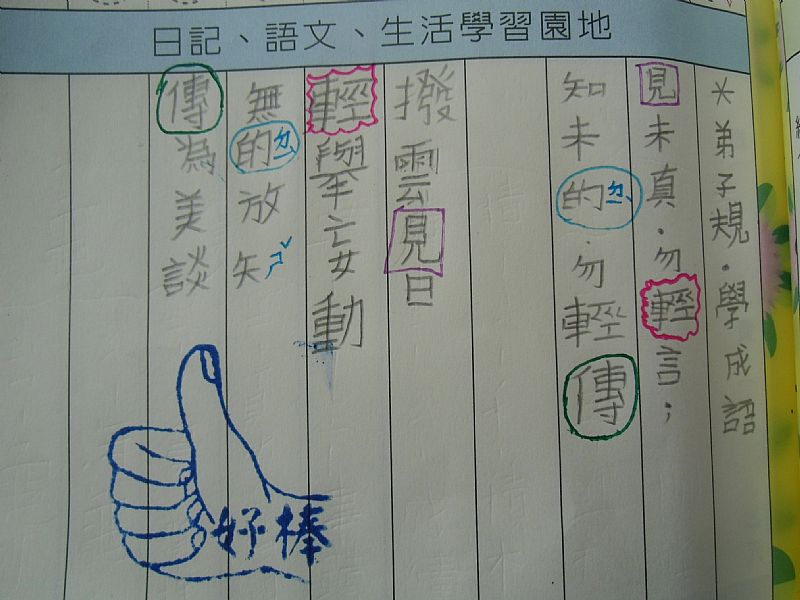 日記、語文、生活學習園地
＊弟子規．學成語
見未真．勿輕言；
知未的ㄉㄧˋ．勿輕傳
撥雲見日
輕舉妄動
無的ㄉㄧˋ放矢ㄕˇ
傳為美談
好棒